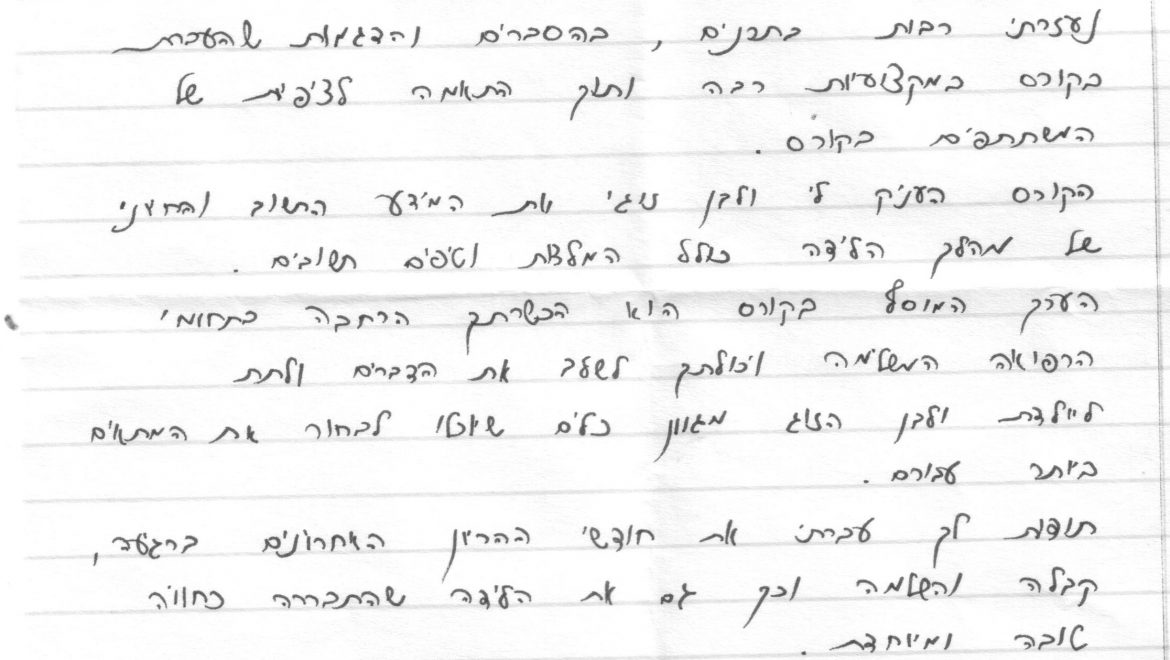 נעזרתי רבות בתכנים, בהסברים והדגמות שהעברת
בקורס במקצועיות רבה ותוך התאמה לציפיות של
המשתתפים בקורס.
הקורס העניק לי ולבן זוגי את המידע החשוב והחיוני
של מהלך הלידה כולל המלצות וטיפים חשובים.
הערך המוסף בקורס הוא הכשרתך הרחבה בתחומי
הרפואה המשלימה ויכולתך לשלב את הדברים ולתת
ליולדת ולבן הזוג מגוון כלים שיוכלו לבחור את המתאים
ביותר עבורם.
תודות לך עברתי את חודשי ההריון האחרונים ברגיעה,
קבלה והשלמה וכך גם את הלידה שהתבררה כחוויה
טובה ומיוחדת.